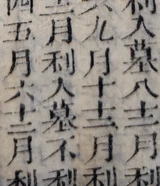 利入墓八十二月利
六九月十二月利
二月利入墓不利
四五月六十二月利